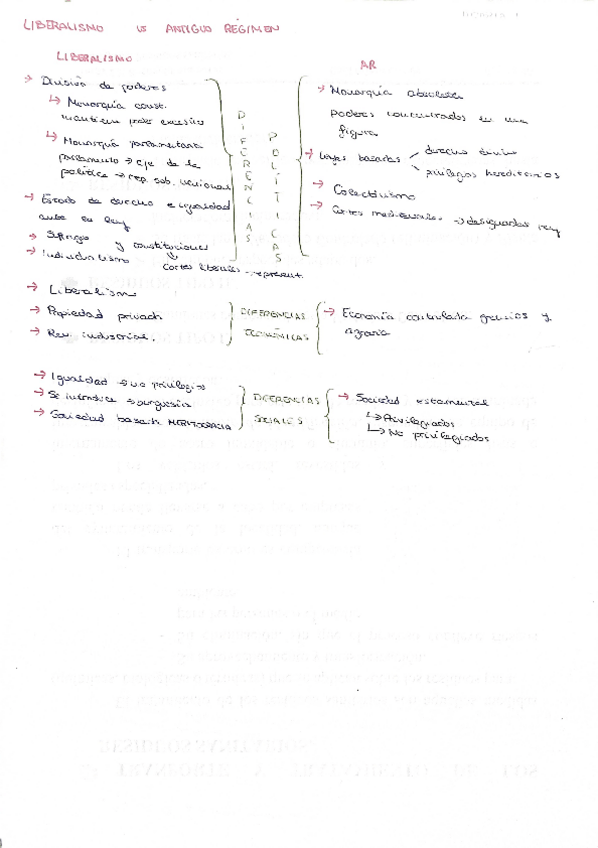 LIBERALISMO vs ANTIGUO RÉGIMEN
LIBERALISMO
→ División de poderes
↳ Monarquía const.
mantiene poder
↳ Monarquía parlamentaria
parlamento → eje de la
política → rep. sob. nacional
→ Estado de derecho e igualdad
ante la ley
→ Sufragio y constituciones
→ Individualismo
Cortes liberales → represent.
DIFERENCIAS
POLÍTICAS
AR
→ Monarquía absoluta
poderes concentrados en una
figura
→ Leyes basadas
derecho divino
privilegios hereditarios
→ Colectivismo
→ Cortes medievales → rey
→ Liberalismo
→ Propiedad privada
→ Rev. industrial.
DIFERENCIAS
ECONÓMICAS
→ Economía controlada gremios y
agraria
→ Igualdad → no privilegios
→ Se introduce → burguesía
→ Sociedad basada MERITOCRACIA
DIFERENCIAS
SOCIALES
→ Sociedad estamental
↳ Privilegiados
↳ No privilegiados